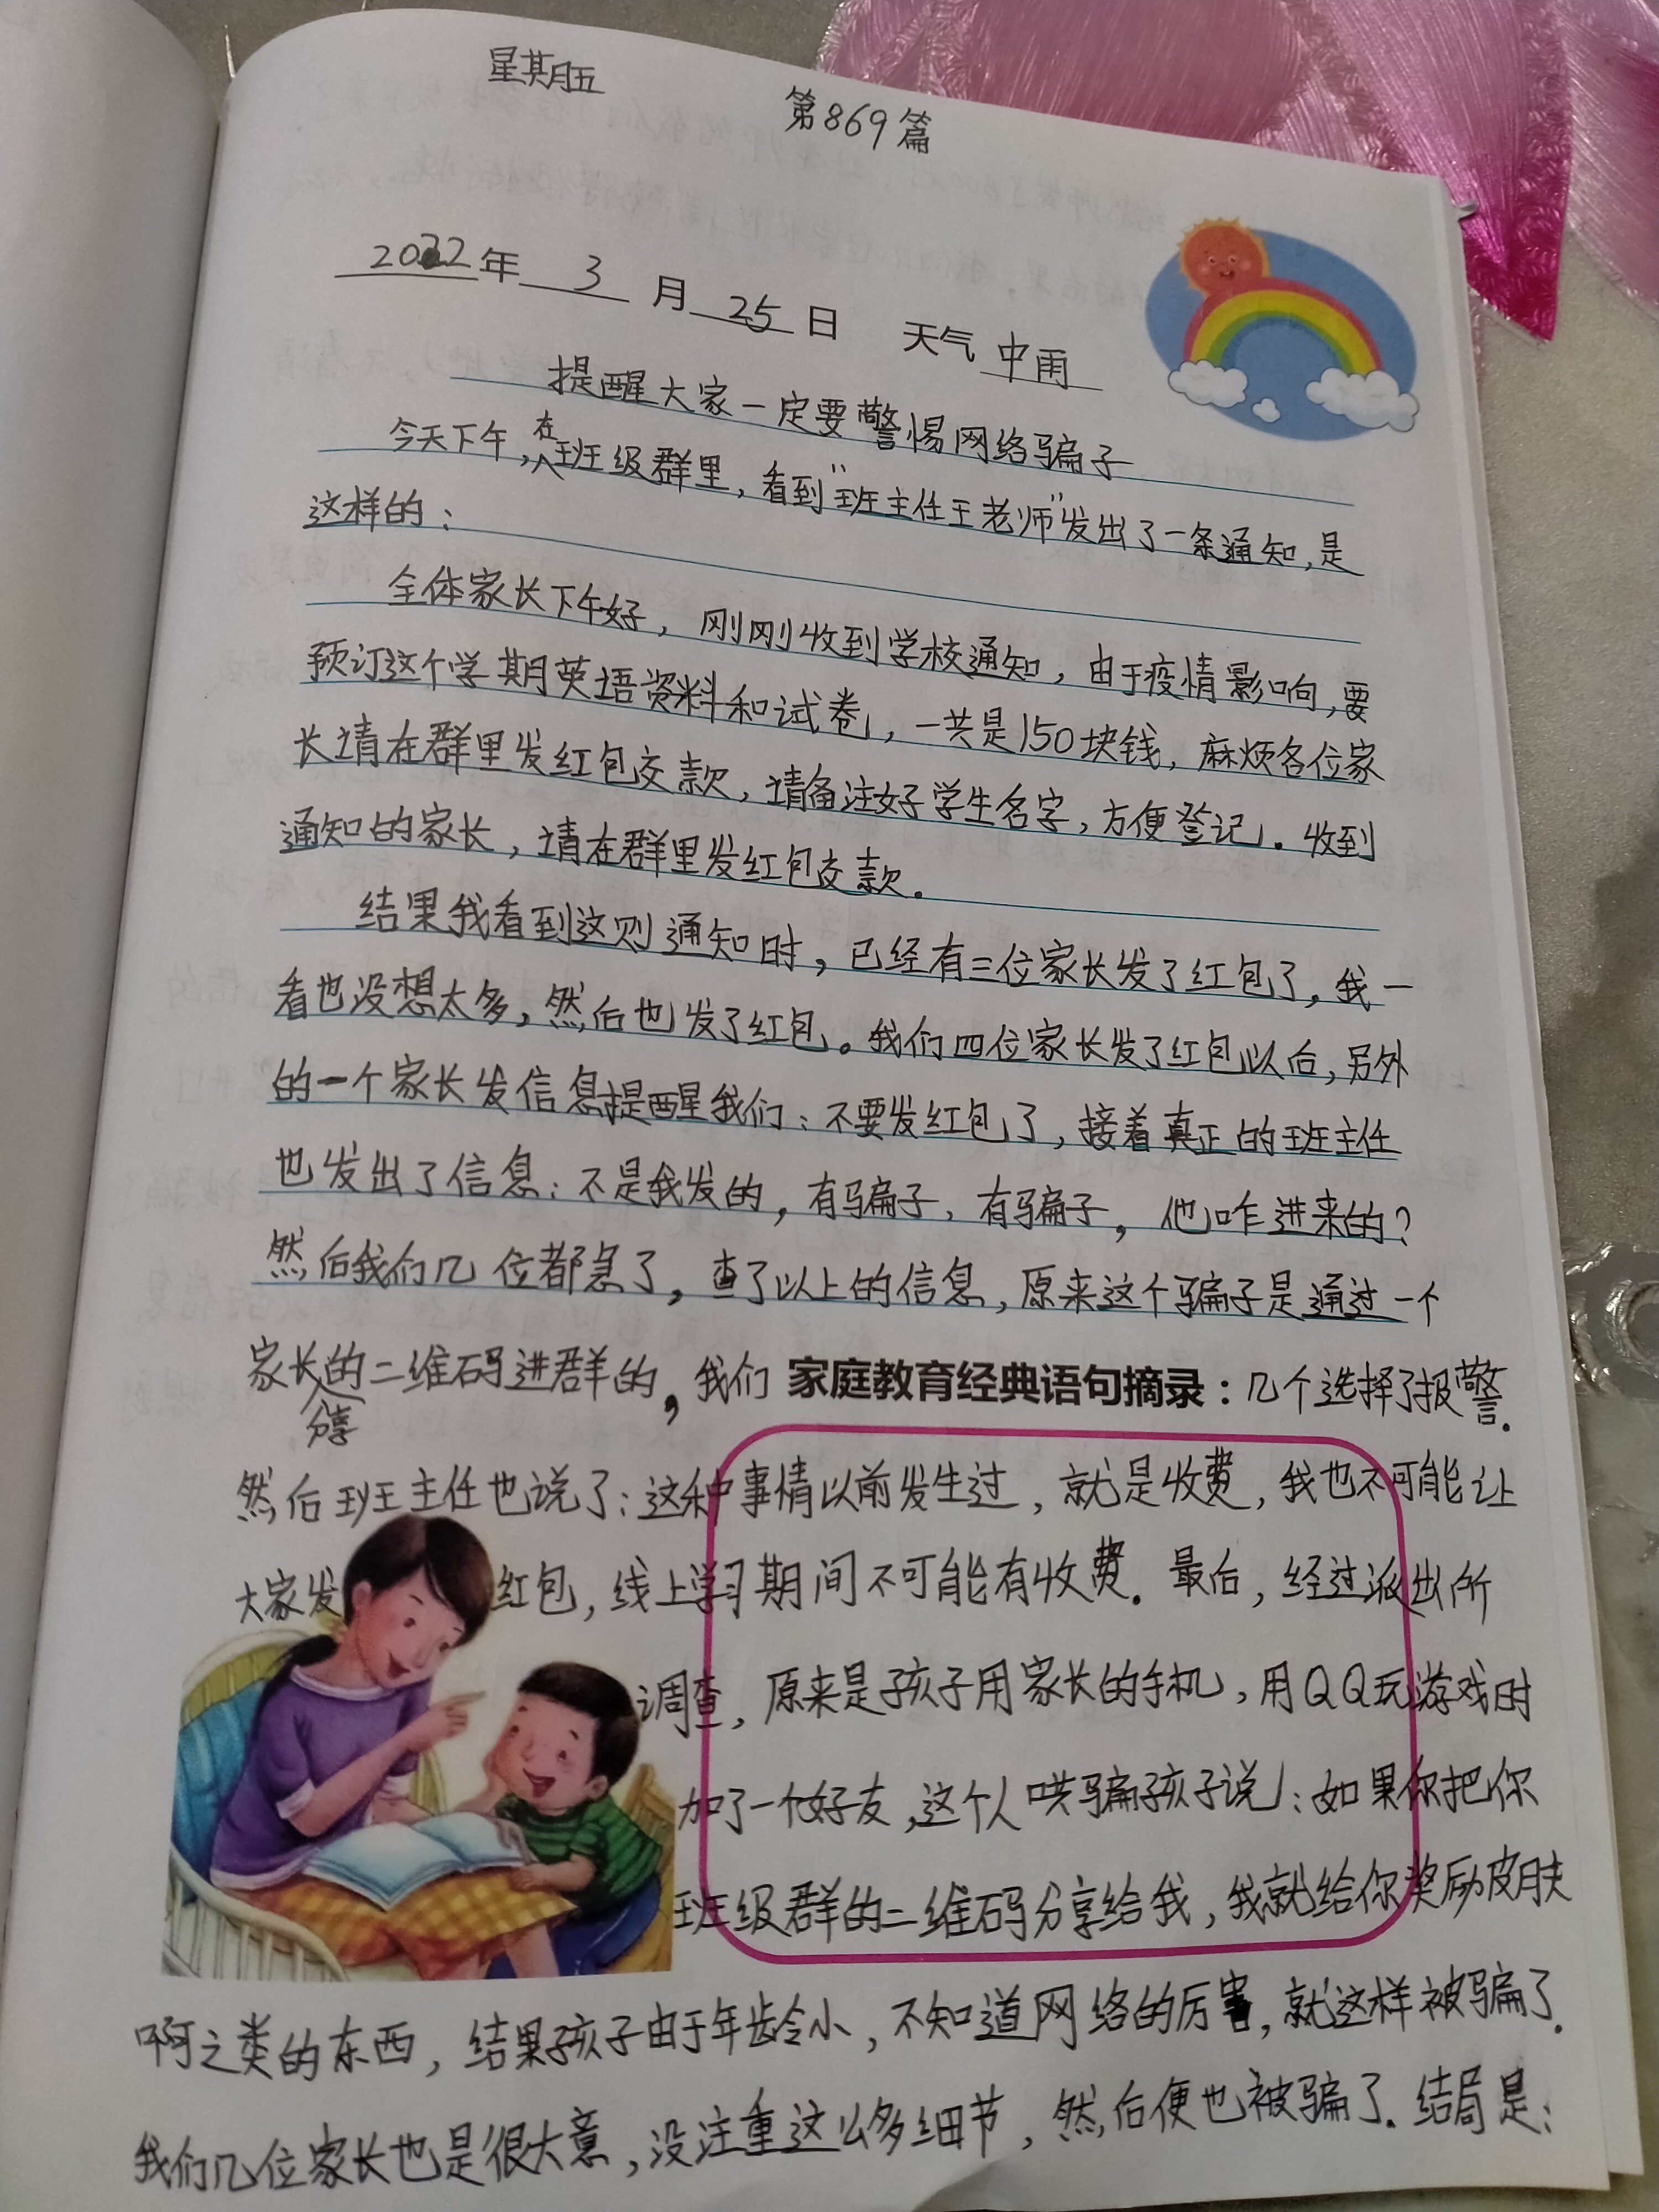 星期五
第869篇
2022年 3 月 25 日 天气 中雨
提醒大家一定要警惕网络骗子
今天下午,在班级群里,看到"班主任王老师"发出了一条通知,是
这样的:
全体家长下午好,刚刚收到学校通知,由于疫情影响,要
预订这个学期英语资料和试卷,一共是150块钱,麻烦各位家
长请在群里发红包交款,请备注好学生名字,方便登记。收到
通知的家长,请在群里发红包交款。
结果我看到这则通知时,已经有三位家长发了红包了,我一
看也没想太多,然后也发了红包。我们四位家长发了红包以后,另外
的一个家长发信息提醒我们:不要发红包了,接着真正的班主任
也发出了信息:不是我发的,有骗子,有骗子,他咋进来的?
然后我们几位都急了,查了以上的信息,原来这个骗子是通过一个
家长分享的二维码进群的,我们 家庭教育经典语句摘录:几个选择了报警.
然后班主任也说了:这种事情以前发生过,就是收费,我也不可能让
大家发红包,线上学习期间不可能有收费.最后,经过派出所
调查,原来是孩子用家长的手机,用QQ玩游戏时
加了一个好友,这个人哄骗孩子说:如果你把你
班级群的二维码分享给我,我就给你奖励皮肤
啊之类的东西,结果孩子由于年龄小,不知道网络的厉害,就这样被骗了.
我们几位家长也是很大意,没注重这么多细节,然后便也被骗了.结局是: